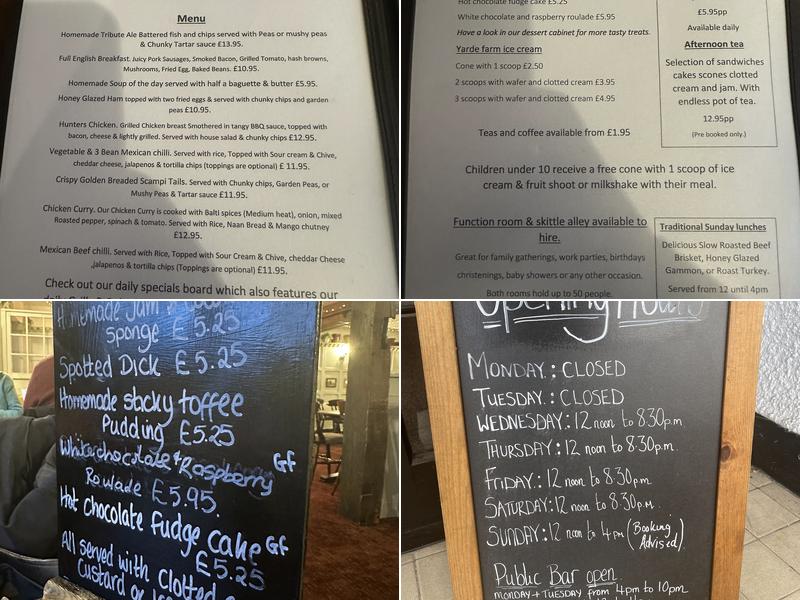 Menu
Homemade Tribute Ale Battered fish and chips served with Peas or mushy peas
& Chunky Tartar sauce £13.95.
Full English Breakfast. Juicy Pork Sausages, Smoked Bacon, Grilled Tomato, hash browns,
Mushrooms, Fried Egg, Baked Beans. £10.95.
Homemade Soup of the day served with half a baguette & butter £5.95.
Honey Glazed Ham topped with two fried eggs & served with chunky chips and garden
peas £10.95.
Hunters Chicken. Grilled Chicken breast Smothered in tangy BBQ sauce, topped with
bacon, cheese & lightly grilled. Served with house salad & chunky chips £12.95.
Vegetable & 3 Bean Mexican chilli. Served with rice, Topped with Sour cream & Chive,
cheddar cheese, jalapenos & tortilla chips (toppings are optional) £ 11.95.
Crispy Golden Breaded Scampi Tails. Served with Chunky chips, Garden Peas, or
Mushy Peas & Tartar sauce £11.95.
Chicken Curry. Our Chicken Curry is cooked with Balti spices (Medium heat), onion, mixed
Roasted pepper, spinach & tomato. Served with Rice, Naan Bread & Mango chutney
£12.95.
Mexican Beef chilli. Served with Rice, Topped with Sour Cream & Chive, cheddar Cheese
,jalapenos & tortilla chips (Toppings are optional) £11.95.
Check out our daily specials board which also features our
Hot chocolate fudge cake £5.25
White chocolate and raspberry roulade £5.95
Have a look in our dessert cabinet for more tasty treats.
Yarde farm ice cream
Cone with 1 scoop £2.50
2 scoops with wafer and clotted cream £3.95
3 scoops with wafer and clotted cream £4.95
Teas and coffee available from £1.95
£5.95pp
Available daily
Afternoon tea
Selection of sandwiches
cakes scones clotted
cream and jam. With
endless pot of tea.
12.95pp
(Pre booked only.)
Children under 10 receive a free cone with 1 scoop of ice
cream & fruit shoot or milkshake with their meal.
Function room & skittle alley available to
hire.
Great for family gatherings, work parties, birthdays
christenings, baby showers or any other occasion.
Both rooms hold up to 50 people.
Traditional Sunday lunches
Delicious Slow Roasted Beef
Brisket, Honey Glazed
Gammon, or Roast Turkey.
Served from 12 until 4pm
Homemade Jam
sponge £5.25
Spotted Dick £5.25
Homemade sticky toffee
Pudding £5.25
White chocolate + Raspberry GF
Roulade £5.95.
Hot chocolate fudge cake GF
£5.25
All served with clotted
custard or
Opening Hours
MONDAY : CLOSED
TUESDAY : CLOSED
WEDNESDAY : 12 noon to 8.30p.m
THURSDAY : 12 noon to 8.30p.m.
FRIDAY : 12 noon to 8.30p.m.
SATURDAY : 12 noon to 8.30p.m.
SUNDAY : 12 noon to 4pm (Booking
Advised)
Public Bar open
MONDAY + TUESDAY from 4pm to 10pm